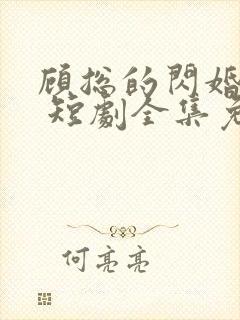 顾总的閃婚
短劇全集免
何亮亮